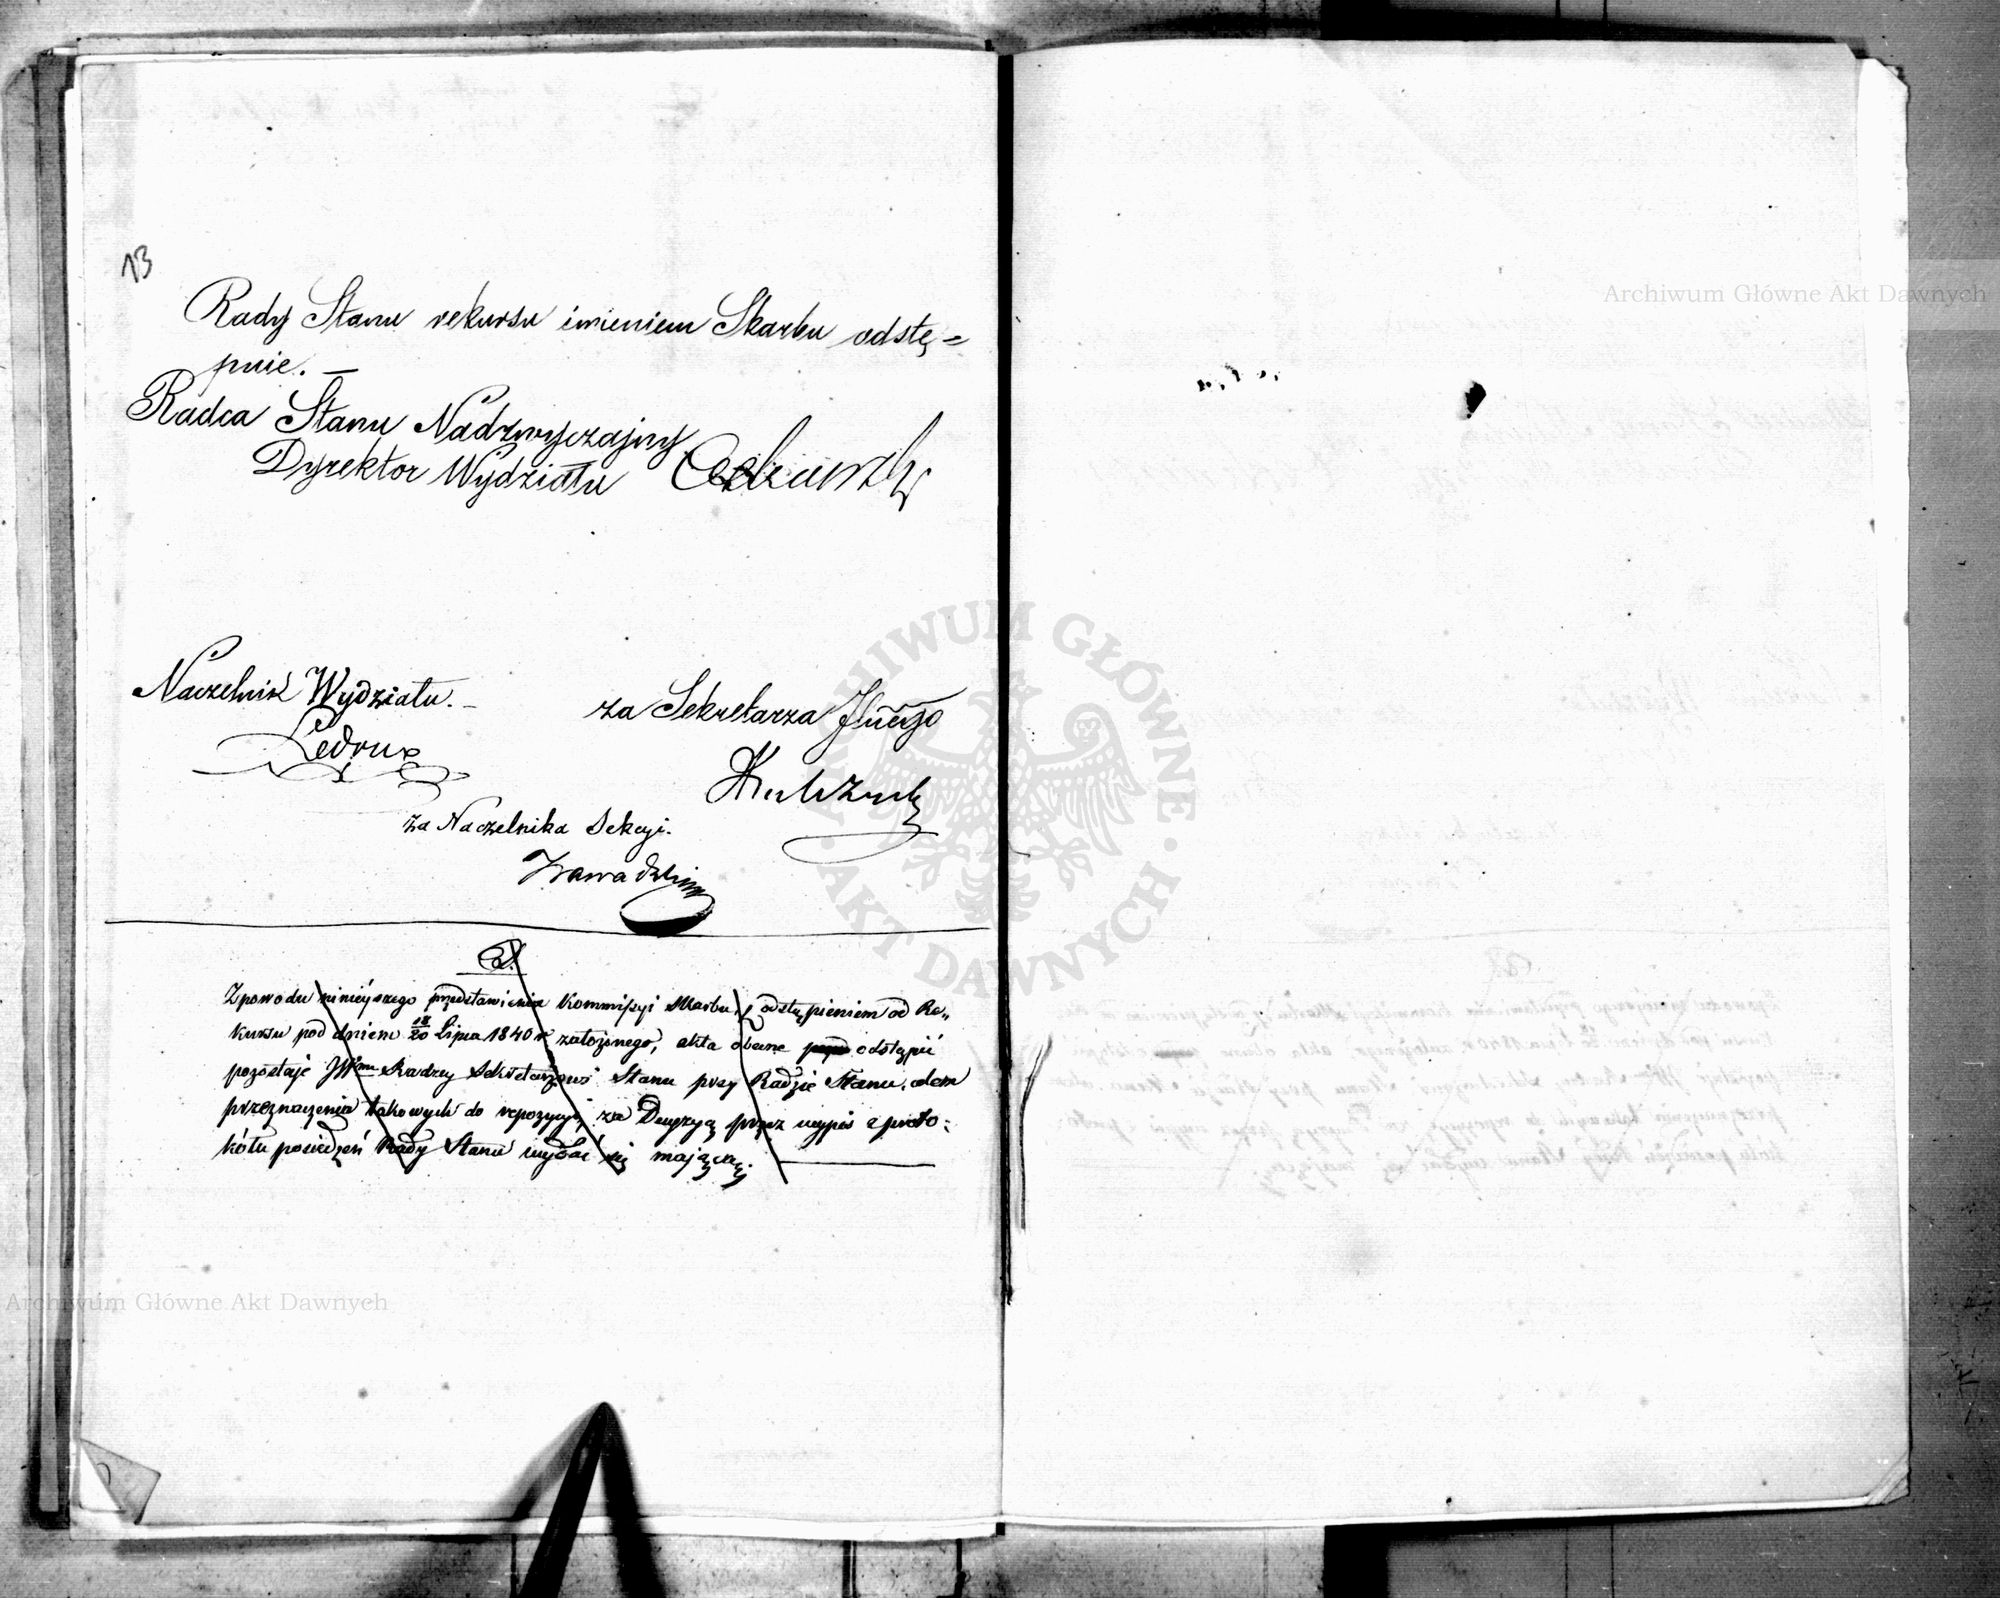 13
Rady Stanu rekursu imieniem Skarbu odstę=
puie. —
Radca Stanu Nadzwyczajny
Dyrektor Wydziału
Naczelnik Wydziału. –
Ledoux
za Sekretarza Jlnego
za Naczelnika Sekcyi.
Zawadzki
Z powodu ninieyszego przedstawienia Kommissyi Skarbu, z odstąpieniem od Re„
kursu pod dniem 18/20 Lipca 1840 r. założonego, akta obecne odstąpić
pozostaje JWmu Radzcy Sekretarzowi Stanu przy Radzie Stanu, celem
przeznaczenia takowych do repozycyi, za Decyzyą przez wypis z proto:
kółu posiedzeń Rady Stanu wydać się mającą.
Archiwum Główne Akt Dawnych
Archiwum Główne Akt Dawnych
ARCHIWUM GŁÓWNE · AKT DAWNYCH ·